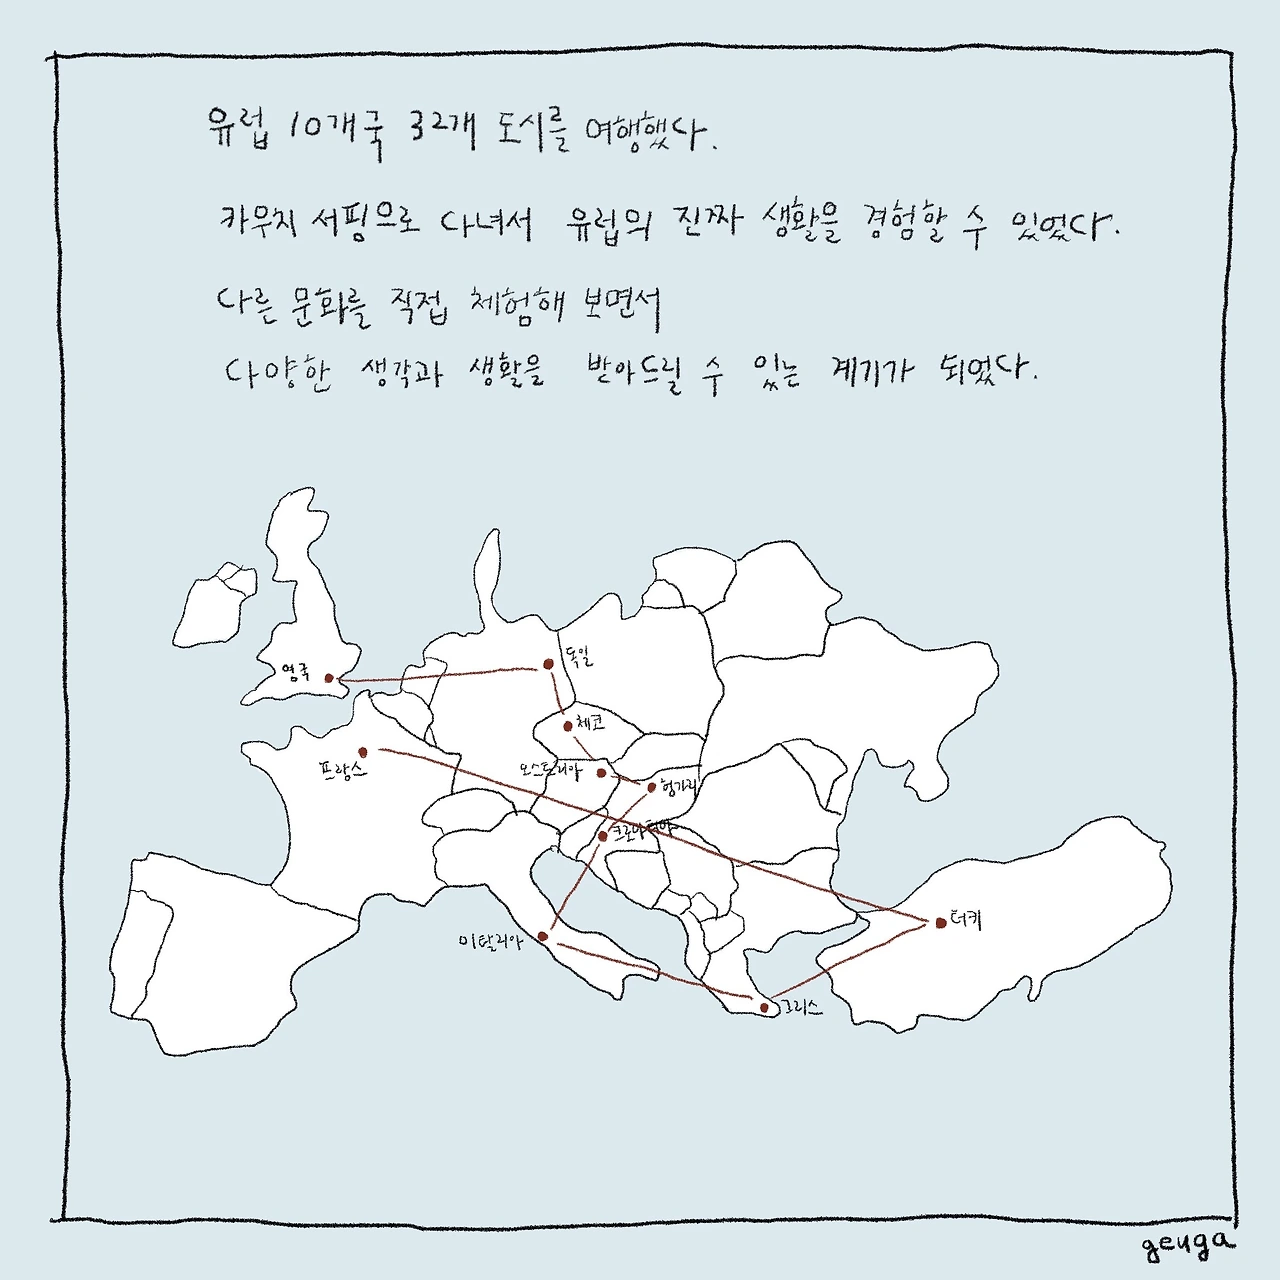 유럽 10개국 32개 도시를 여행했다.
카우치 서핑으로 다녀서 유럽의 진짜 생활을 경험할 수 있었다.
다른 문화를 직접 체험해 보면서
다양한 생각과 생활을 받아드릴 수 있는 계기가 되었다.
영국
독일
체코
프랑스
오스트리아
헝가리
크로아티아
터키
이탈리아
그리스
geuga